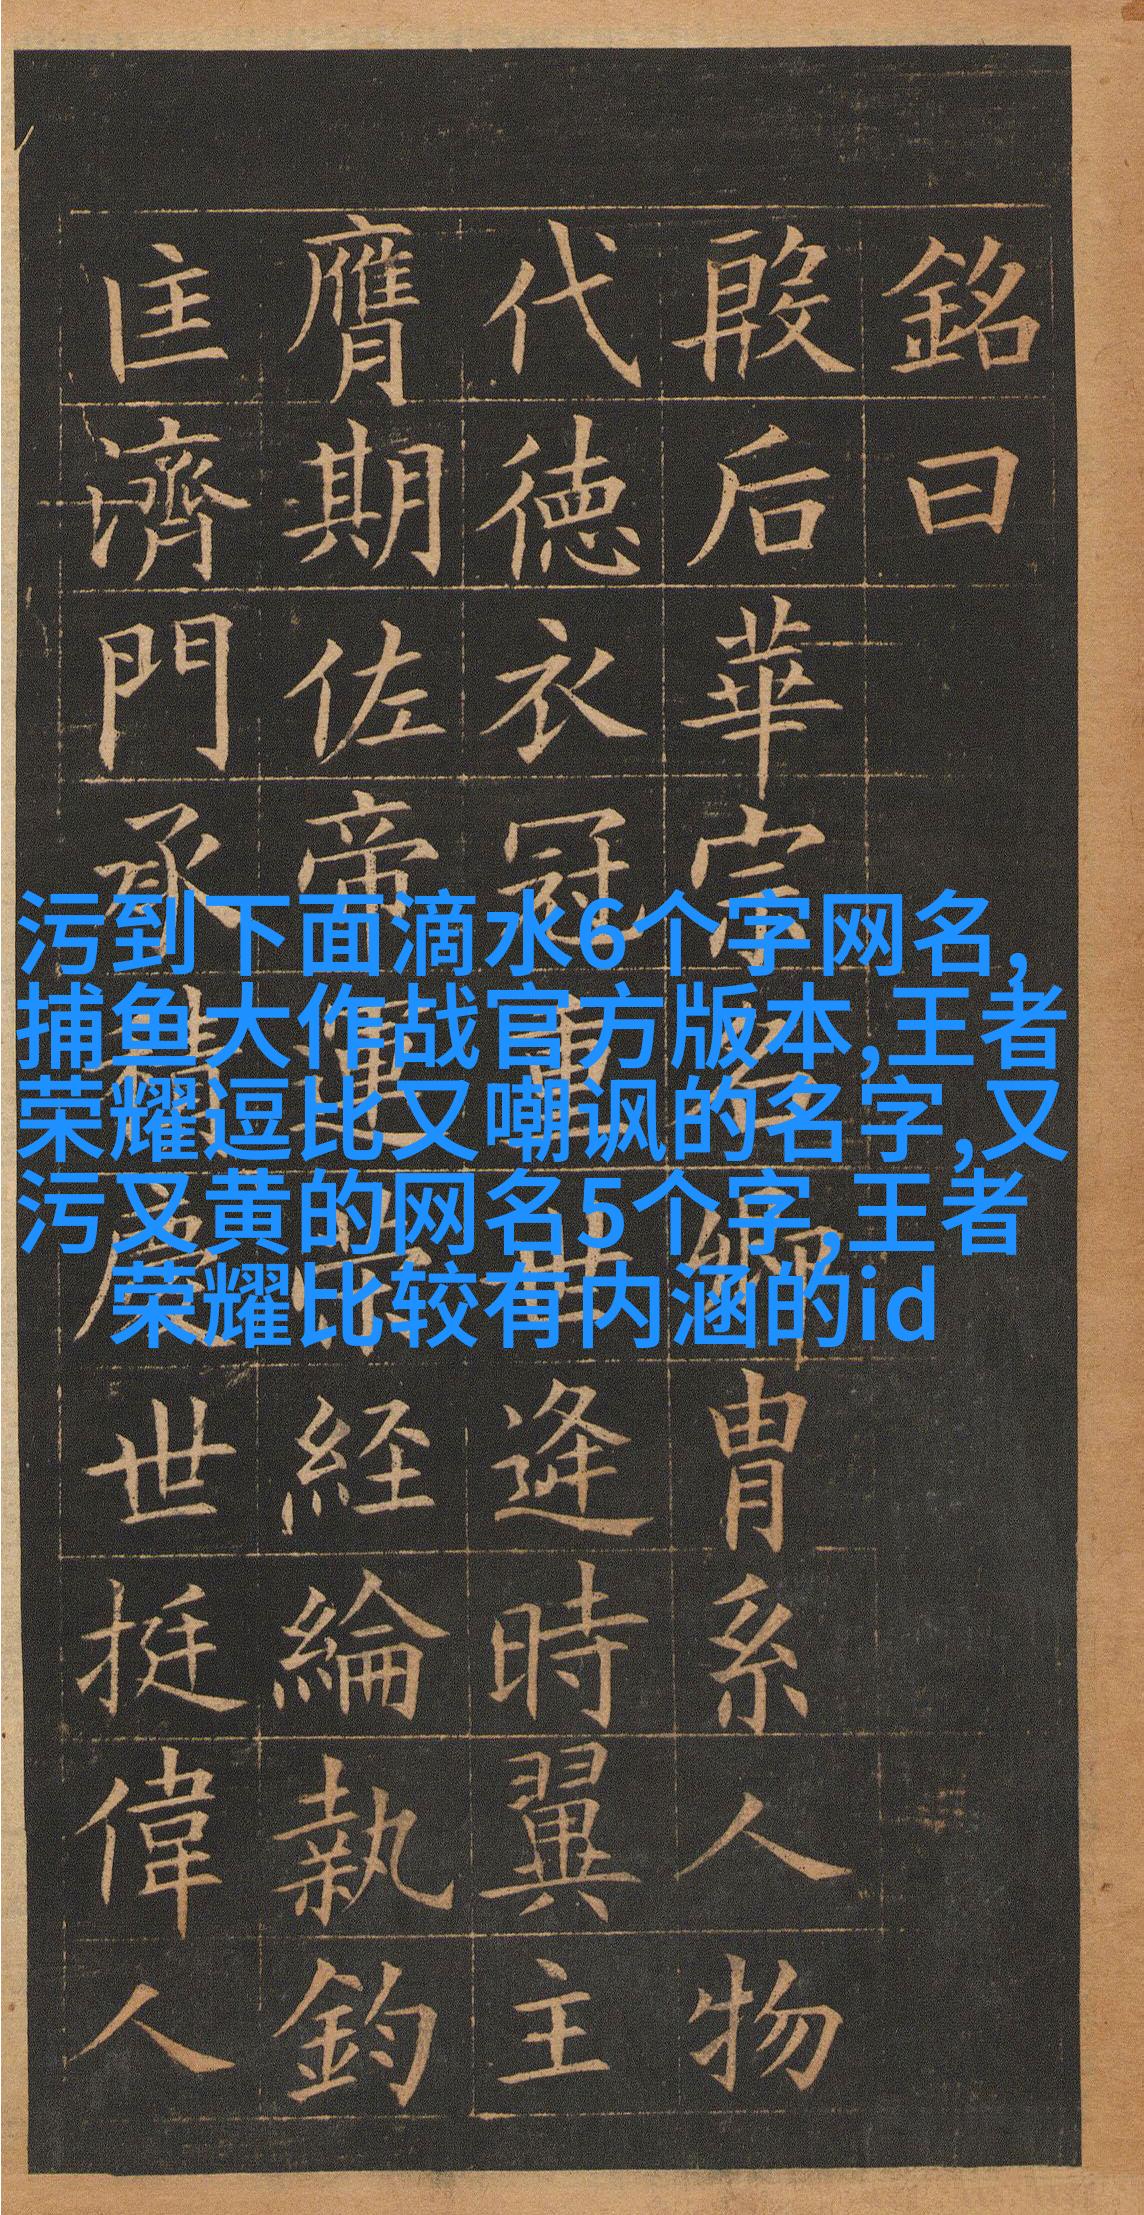 銘曰
殷后華宗卿胄系人物
代德衣冠重世逢時翼主
膺期佐帝運経綸執鈞
匡濟門承慶世挺偉人
污到下面滴水6个字网名,
捕鱼大作战官方版本,王者
荣耀逗比又嘲讽的名字,又
污又黄的网名5个字,王者
荣耀比较有内涵的id